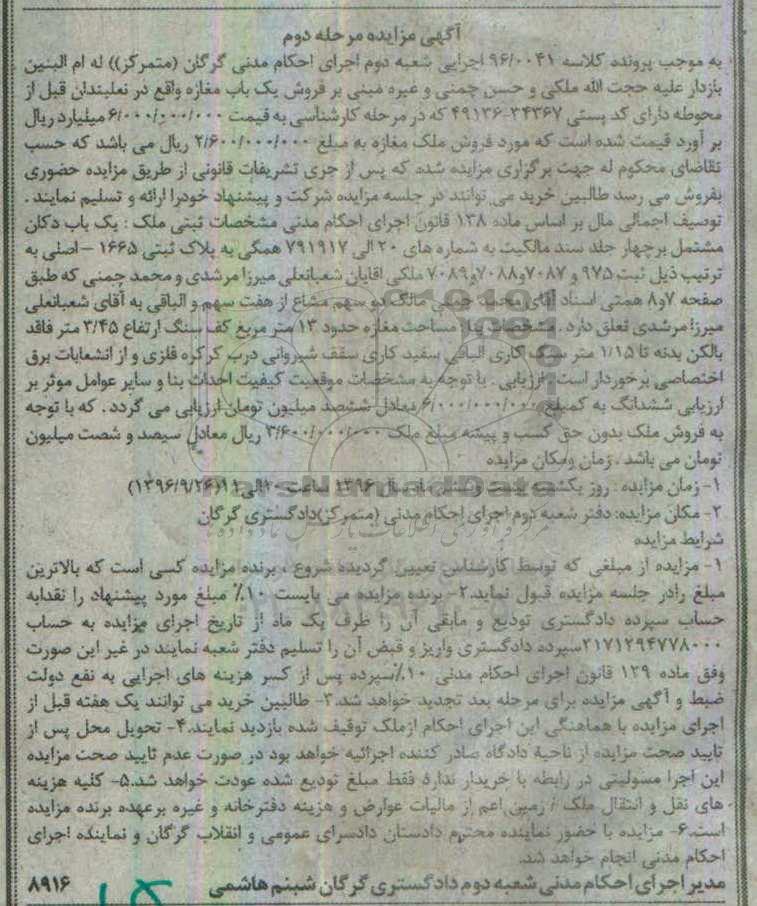 آگهی مزایده مرحله دوم
به موجب پرونده کلاسه ۹۶/۰۰۴۱ اجرایی شعبه دوم اجرای احکام مدنی گرگان (متمرکز)) له ام البنین
بازدار علیه حجت الله ملکی و حسن چمنی و غیره مبنی بر فروش یک باب مغازه واقع در نعلبندان قبل از
محوطه دارای کد پستی ۳۴۳۶۷-۴۹۱۳۶ که در مرحله کارشناسی به قیمت ۶/۰۰۰/۰۰۰/۰۰۰ میلیارد ریال
بر آورد قیمت شده است که مورد فروش ملک مغازه به مبلغ ۲/۶۰۰/۰۰۰/۰۰۰ ریال می باشد که حسب
تقاضای محکوم له جهت برگزاری مزایده شده که پس از جری تشریفات قانونی از طریق مزایده حضوری
بفروش می رسد طالبین خرید می توانند در جلسه مزایده شرکت و پیشنهاد خودرا ارائه و تسلیم نمایند .
توصیف اجمالی مال بر اساس ماده ۱۳۸ قانون اجرای احکام مدنی مشخصات ثبتی ملک : یک باب دکان
مشتمل برچهار جلد سند مالکیت به شماره های ۲۰ الی ۷۹۱۹۱۷ همگی به پلاک ثبتی ۱۶۶۵ – اصلی به
ترتیب ذیل ثبت ۹۷۵ و ۷۰۸۷و۷۰۸۸و۷۰۸۹ ملکی اقایان شعبانعلی میرزا مرشدی و محمد چمنی که طبق
صفحه ۷و۸ همتی اسناد آقای محمد چمنی مالک دو سهم مشاع از هفت سهم و الباقی به آقای شعبانعلی
میرزا مرشدی تعلق دارد . مشخصات بنا: مساحت مغازه حدود ۱۳ متر مربع کف سنگ ارتفاع ۳/۴۵ متر فاقد
بالکن بدنه تا ۱/۱۵ متر سنگ کاری الباقی سفید کاری سقف شیروانی درب کرکره فلزی و از انشعابات برق
اختصاصی برخوردار است. ارزیابی . با توجه به مشخصات موقعیت کیفیت احداث بنا و سایر عوامل موثر بر
ارزیابی ششدانگ به کمبلغ ۶/۰۰۰/۰۰۰/۰۰۰ معادل ششصد میلیون تومان ارزیابی می گردد . که با توجه
به فروش ملک بدون حق کسب و پیشه مبلغ ملک ۳/۶۰۰/۰۰۰/۰۰۰ ریال معادل سیصد و شصت میلیون
تومان می باشد . زمان ومکان مزایده
۱- زمان مزایده : روز یکشنبه ۱۳۹۶ ساعت ۱۰الی۱۱(۱۳۹۶/۹/۲۶)
۲- مکان مزایده: دفتر شعبه دوم اجرای احکام مدنی (متمرکز)دادگستری گرگان
شرایط مزایده
۱- مزایده از مبلغی که توسط کارشناس تعیین گردیده شروع ، برنده مزایده کسی است که بالاترین
مبلغ رادر جلسه مزایده قبول نماید.۲- برنده مزایده می بایست ۱۰٪ مبلغ مورد پیشنهاد را نقدابه
حساب سپرده دادگستری تودیع و مابقی آن را ظرف یک ماه از تاریخ اجرای مزایده به حساب
۲۱۷۱۲۹۴۷۷۸۰۰۰سپرده دادگستری واریز و قبض آن را تسلیم دفتر شعبه نمایند در غیر این صورت
وفق ماده ۱۲۹ قانون اجرای احکام مدنی ۱۰٪سپرده پس از کسر هزینه های اجرایی به نفع دولت
ضبط و آگهی مزایده برای مرحله بعد تجدید خواهد شد.۳- طالبین خرید می توانند یک هفته قبل از
اجرای مزایده با هماهنگی این اجرای احکام ازملک توقیف شده بازدید نمایند.۴- تحویل محل پس از
تایید صحت مزایده از ناحیه دادگاه صادر کننده اجرائیه خواهد بود در صورت عدم تایید صحت مزایده
این اجرا مسولیتی در رابطه با خریدار ندارد فقط مبلغ تودیع شده عودت خواهد شد.۵- کلیه هزینه
های نقل و انتقال ملک / زمین اعم از مالیات عوارض و هزینه دفترخانه و غیره برعهده برنده مزایده
است.۶- مزایده با حضور نماینده محترم دادستان دادسرای عمومی و انقلاب گرگان و نماینده اجرای
احکام مدنی انجام خواهد شد.
مدیر اجرای احکام مدنی شعبه دوم دادگستری گرگان شبنم هاشمی ۸۹۱۶